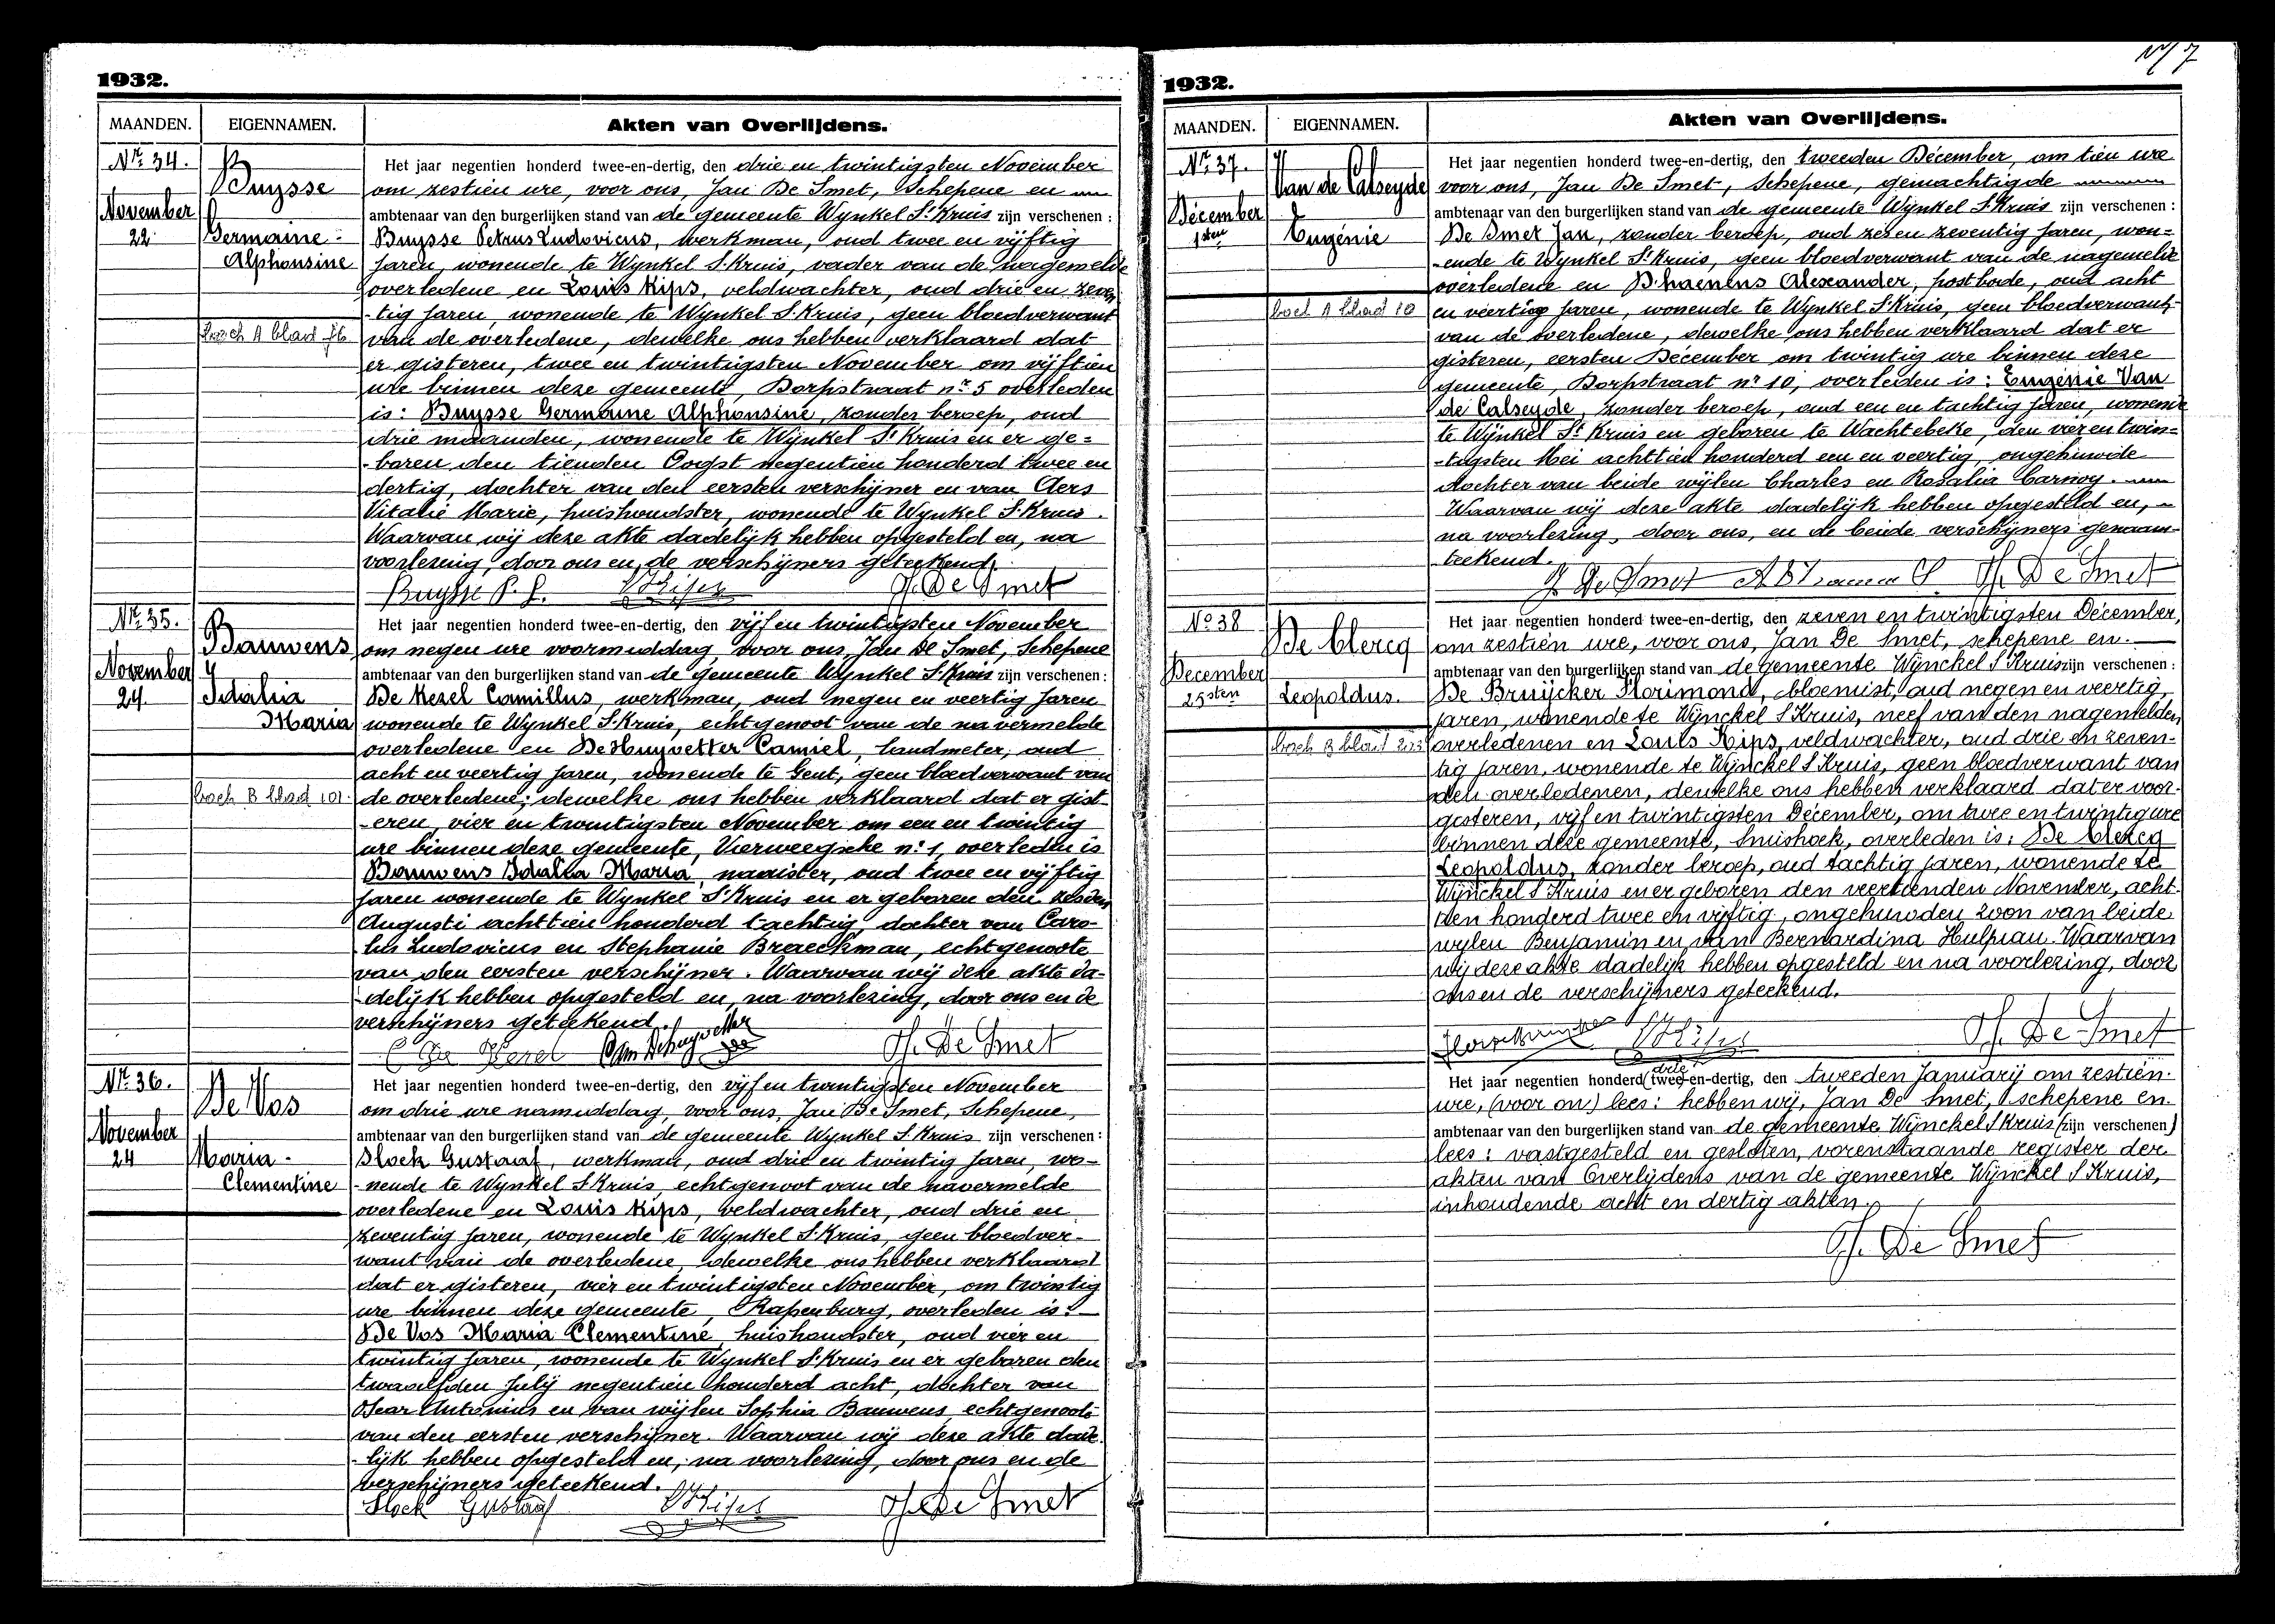 1932.
MAANDEN. EIGENNAMEN. Akten van Overlijdens.
Nr. 34.
Buysse
November
22
Germaine-
Alphonsine
boek A blad 76
Het jaar negentien honderd twee-en-dertig, den drie en twintigsten November
om zestien ure, voor ons, Jan De Smet, Schepene en
ambtenaar van den burgerlijken stand van de gemeente Wynkel St. Kruis zijn verschenen :
Buysse Petrus Ludovicus, werkman, oud twee en vijftig
jaren, wonende te Wynkel St. Kruis, vader van de nagemelde
overledene en Louis Kips, veldwachter, oud drie en zeven
-tig jaren, wonende te Wynkel St. Kruis, geen bloedverwant
van de overledene, dewelke ons hebben verklaard dat
er gisteren, twee en twintigsten November om vijftien
ure binnen deze gemeente, Dorpstraat nr. 5 overleden
is: Buysse Germaine Alphonsine, zonder beroep, oud
drie maanden, wonende te Wynkel St Kruis en er ge=
-boren den tienden Oogst negentien honderd twee en
dertig, dochter van den eersten verschijner en van Aers
Vitalie Marie, huishoudster, wonende te Wynkel St. Kruis.
Waarvan wij deze akte dadelijk hebben opgesteld en, na
voorlezing, door ons en, de verschijners geteekend.
Buysse P. L. L Kips J. De Smet
Nr. 35.
Bauwens
November
24.
Idalia
Maria
boek B blad 101.
Het jaar negentien honderd twee-en-dertig, den vijf en twintigsten November
om negen ure voormiddag, voor ons, Jan De Smet, Schepene
ambtenaar van den burgerlijken stand van de gemeente Wynkel St. Kruis zijn verschenen :
De Kezel Camillus, werkman, oud negen en veertig jaren
wonende te Wynkel St. Kruis, echtgenoot van de navermelde
overledene en De Huyvetter Camiel, landmeter, oud
acht en veertig jaren, wonende te Gent, geen bloedverwant van
de overledene; dewelke ons hebben verklaard dat er gist-
-eren, vier en twintigsten November om een en twintig
ure binnen deze gemeente, Vierweegsche nr. 1, overleden is
Bauwens Idalia Maria, naaister, oud twee en vijftig
jaren wonende te Wynkel St Kruis en er geboren den zesden
Augusti achttien honderd tachtig, dochter van Caro-
lus Ludovicus en Stephanie Braeckman, echtgenoote
van den eersten verschijner. Waarvan wij deze akte da-
-delijk hebben opgesteld en, na voorlezing, door ons en de
verschijners geteekend.
C De Kezel Cam Dehuyvetter J. De Smet
Nr. 36.
De Vos
November
24
Maria-
Clementine
Het jaar negentien honderd twee-en-dertig, den vijf en twintigsten November
om drie ure namiddag, voor ons, Jan De Smet, Schepene,
ambtenaar van den burgerlijken stand van de gemeente Wynkel St. Kruis zijn verschenen :
Slock Gustaaf, werkman, oud drie en twintig jaren, wo-
-nende te Wynkel St. Kruis, echtgenoot van de navermelde
overledene en Louis Kips, veldwachter, oud drie en
zeventig jaren, wonende te Wynkel St. Kruis, geen bloedver-
want van de overledene, dewelke ons hebben verklaard
dat er gisteren, vier en twintigsten November, om twintig
ure binnen deze gemeente, Rapenburg, overleden is:
De Vos Maria Clementine, huishoudster, oud vier en
twintig jaren, wonende te Wynkel St. Kruis en er geboren den
twaalfden July negentien honderd acht, dochter van
Oscar Antonius en van wijlen Sophia Bauwens, echtgenoote
van den eersten verschijner. Waarvan wij deze akte dade
-lijk hebben opgesteld en, na voorlezing, door ons en de
verschijners geteekend.
Slock Gustaaf L Kips J. De Smet
1932.
MAANDEN. EIGENNAMEN. Akten van Overlijdens.
Nr. 37.
Van de Calseyde
Décember
1sten
Eugénie
boek A blad 10
Het jaar negentien honderd twee-en-dertig, den tweeden Décember, om tien ure
voor ons, Jan De Smet, Schepene, gemachtigde
ambtenaar van den burgerlijken stand van de gemeente Wynkel St. Kruis zijn verschenen :
De Smet Jan, zonder beroep, oud zes en zeventig jaren, won=
-ende te Wynkel St. Kruis, geen bloedverwant van de nagemelde
overledene en D'haenens Alexander, postbode, oud acht
en veertig jaren, wonende te Wynkel St. Kruis, geen bloedverwant
van de overledene, dewelke ons hebben verklaard dat er
gisteren, eersten Décember om twintig ure binnen deze
gemeente, Dorpstraat nr 10, overleden is: Eugénie Van
de Calseyde, zonder beroep, oud een en tachtig jaren, wonende
te Wynkel St. Kruis en geboren te Wachtebeke, den vier en twin=
-tigsten Mei achttien honderd een en veertig, ongehuwde
dochter van beide wijlen Charles en Rosalia Carnoy.
Waarvan wij deze akte dadelijk hebben opgesteld en,
na voorlezing, door ons, en de beide verschijners genaam-
teekend.
J De Smet J. De Smet
No 38
De Clercq
December
25sten
Leopoldus.
boek B blad
Het jaar negentien honderd twee-en-dertig, den zeven en twintigsten Décember,
om zestien ure, voor ons, Jan De Smet, schepene en
ambtenaar van den burgerlijken stand van de gemeente Wijnckel St Kruis zijn verschenen :
De Bruijcker Florimond, bloemist, oud negen en veertig
jaren, wonende te Wijnckel St Kruis, neef van den nagemelden,
overledenen en Louis Kips, veldwachter, oud drie en zeven-
tig jaren, wonende te Wijnckel St Kruis, geen bloedverwant van
den overledenen, dewelke ons hebben verklaard dat er voor-
gisteren, vijf en twintigsten Décember, om twee en twintig ure
binnen deze gemeente, Smishoek, overleden is: De Clercq
Leopoldus, zonder beroep, oud tachtig jaren, wonende te
Wijnckel St Kruis en er geboren den veertienden November, acht-
tien honderd twee en vijftig, ongehuwden zoon van beide
wijlen Benjamin en van Bernardina Hulpiau. Waarvan
wij deze akte dadelijk hebben opgesteld en na voorlezing, door
ons en de verschijners geteekend.
L Kips J. De Smet
drie
Het jaar negentien honderd (twee)-en-dertig, den tweeden Januarij om zestien
ure, (voor on) lees: hebben wij, Jan De Smet, schepene en
ambtenaar van den burgerlijken stand van de gemeente Wijnckel St Kruis (zijn verschenen)
lees: vastgesteld en gesloten, vorenstaande register der
akten van Overlijdens van de gemeente Wijnckel St Kruis,
inhoudende acht en dertig akten.
J. De Smet